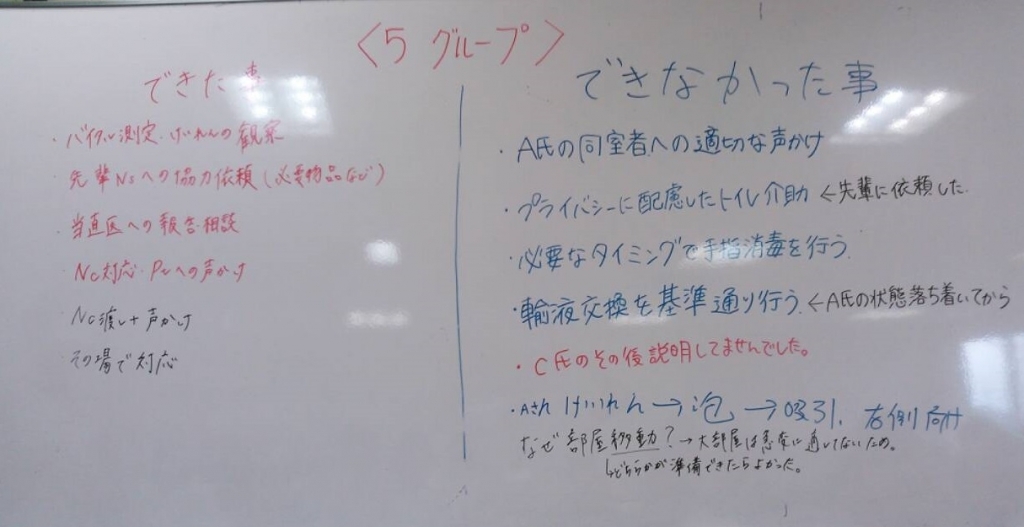 〈5 グループ〉
できた事
・バイタル測定・けいれんの観察
・先輩Nsへの協力依頼(必要物品など)
・当直医への報告・相談
・NC対応・Ptへの声かけ
・NC渡し+声かけ
・その場で対応
できなかった事
・A氏の同室者への適切な声かけ
・プライバシーに配慮したトイレ介助 ←先輩に依頼した.
・必要なタイミングで手指消毒を行う.
・輸液交換を基準通り行う. ←A氏の状態落ち着いてから
・C氏のその後説明してませんでした。
・Aさん けいれん→泡→吸引.
なぜ部屋移動?→大部屋は急変に適してないため。
↳どちらかが準備できたらよかった。